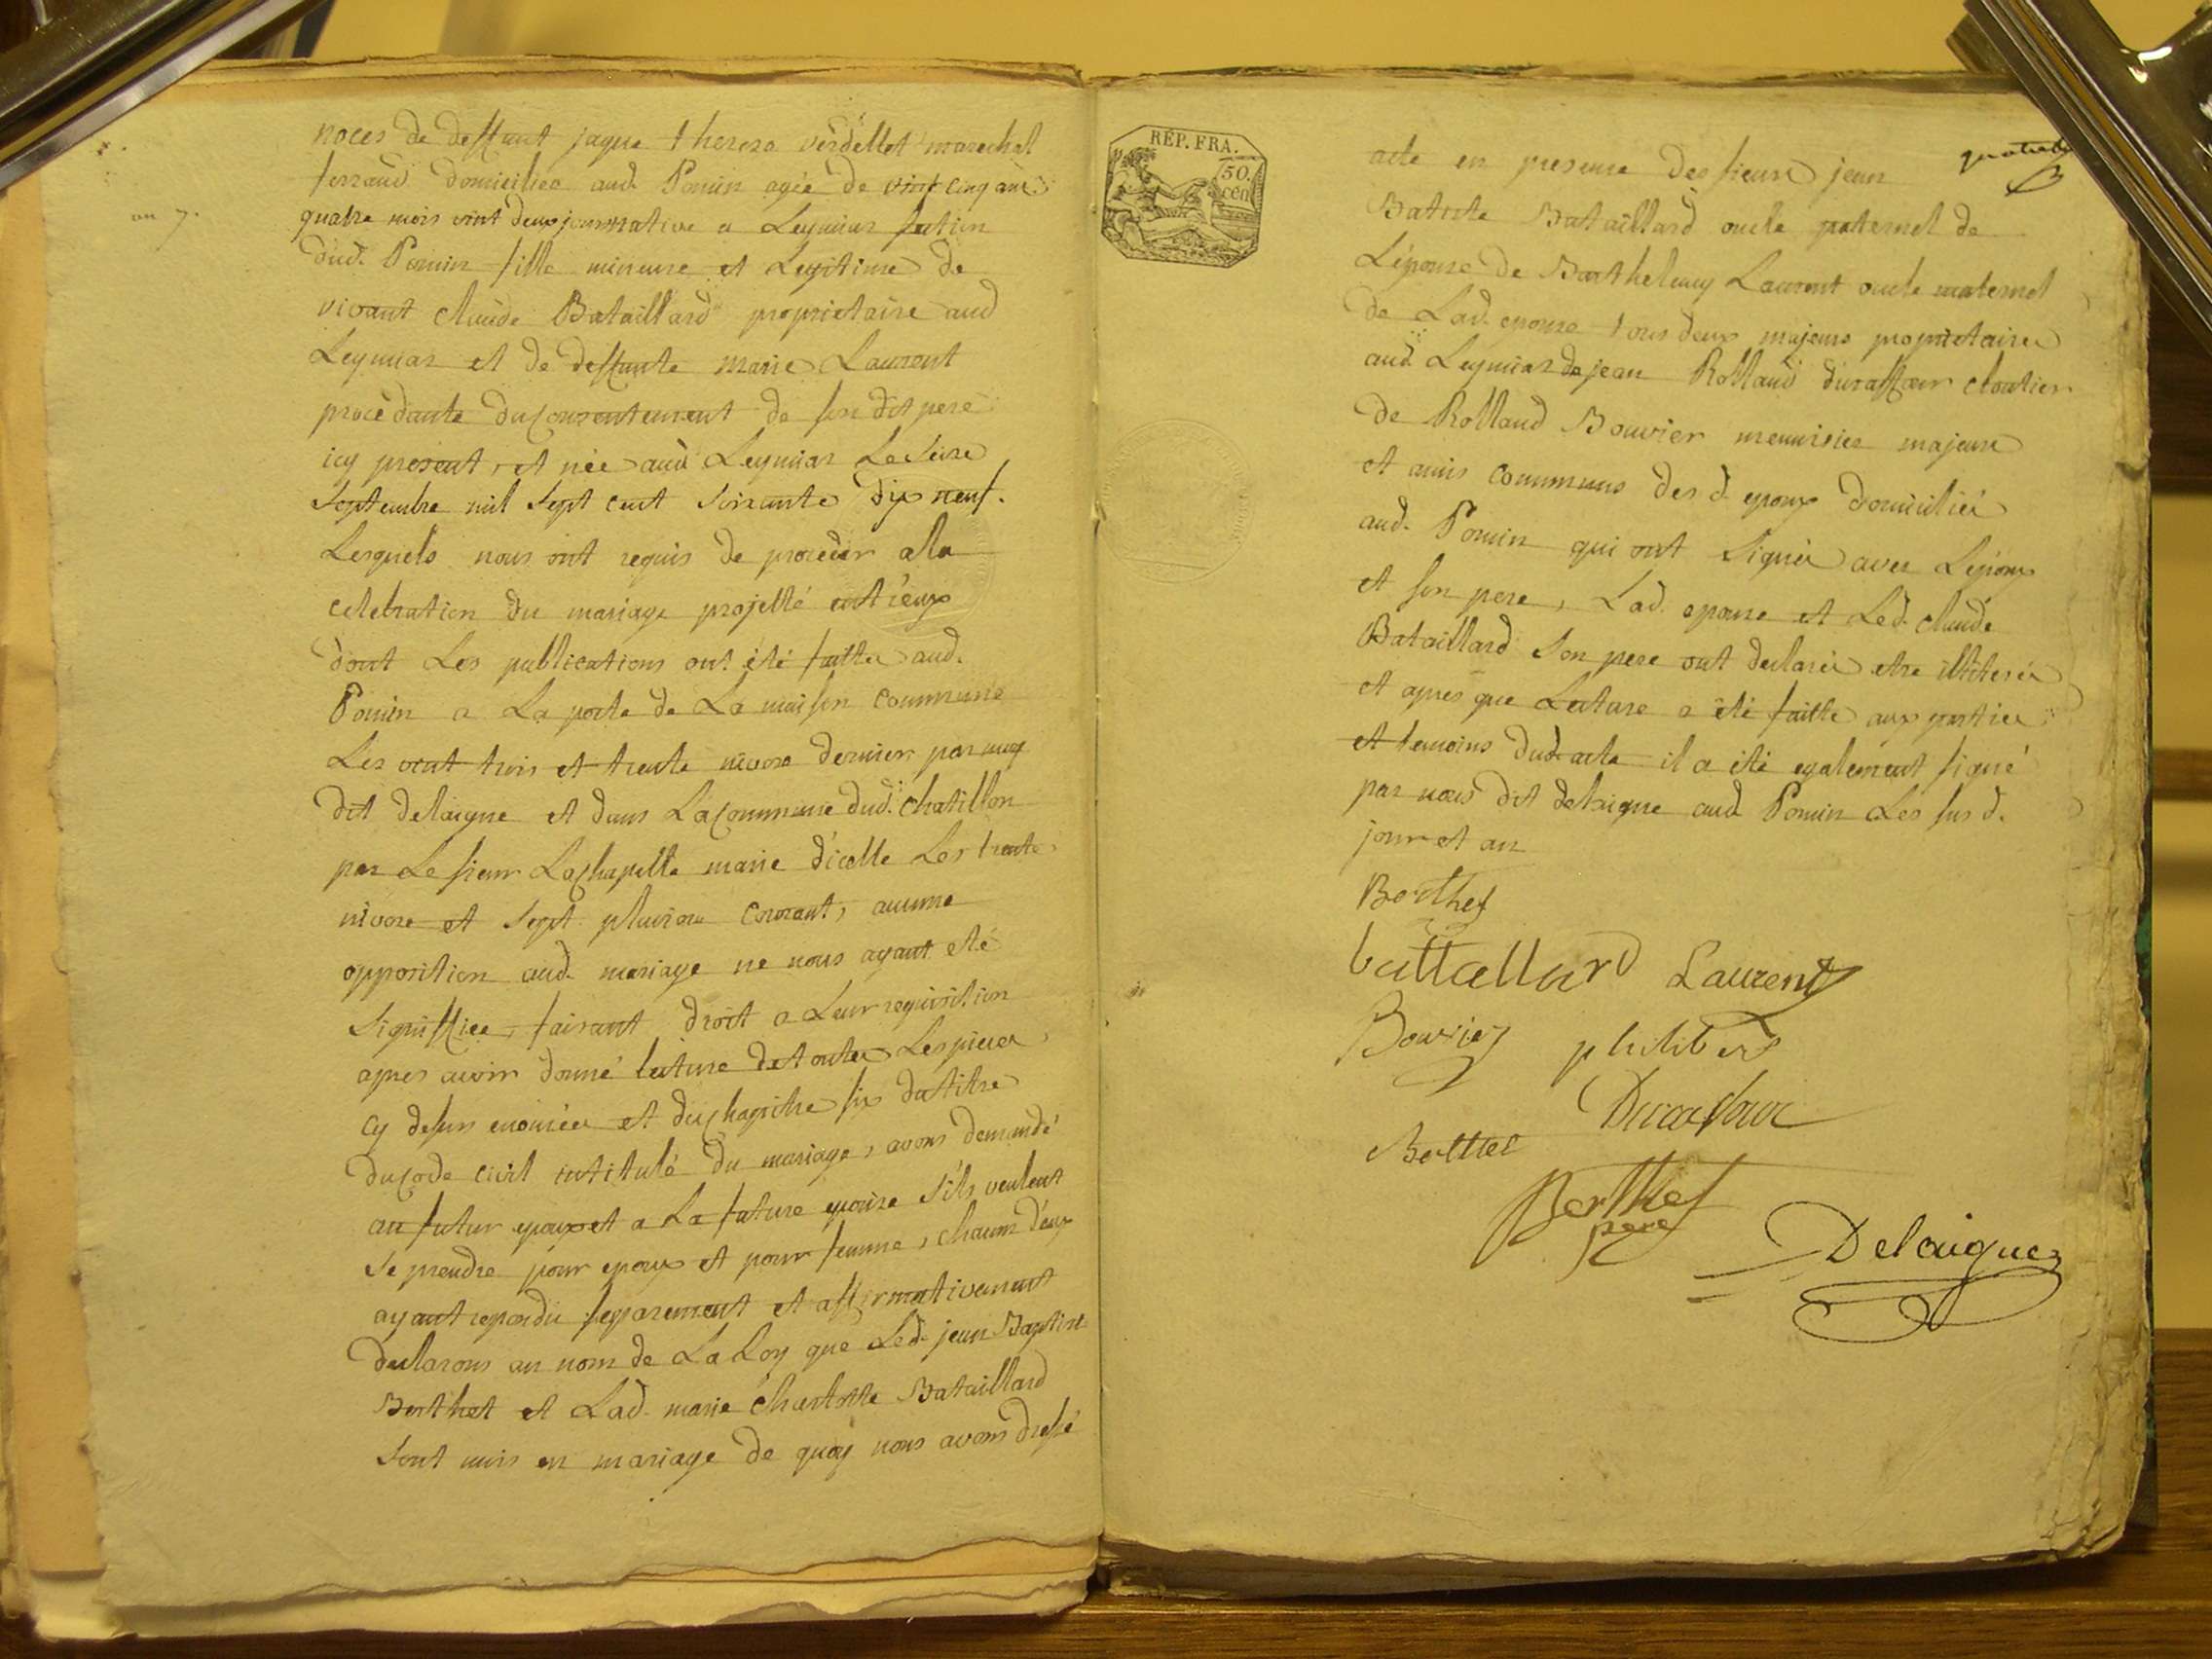 noces de deffunt jaque therese verdellet marechal
ferrand domiciliée aud. Poncin agée de vint cinq ans
an 7.
quatre mois vint deux jours native a Leymiar section
dud. Poncin fille mineure et Legitime de
vivant claude Bataillard proprietaire aud
Leymiar et de deffunte marie Laurent
procédante du consentement de son dit pere
icy present, et née aud Leymiar Le seise
septembre mil sept cent soixante dix neuf.
Lesquels nous ont requis de proceder a la
celebration du mariage projetté entr'eux
dont Les publications ont été faittes aud.
Poncin a La porte de La maison commune
Les vint trois et trente nivose dernier par moy
dit delaigue et dans La commune dud. chatillon
par Le sieur Lachapelle maire d'icelle Les trente
nivose et sept pluviose courant, aucune
opposition aud. mariage ne nous ayant eté
signiffiée, faisant droit a Leur requisition
apres avoir donné lecture de toutes Les pieces
cy dessus enoncées et du chapitre six du titre
du code civil intitulé du mariage, avons demandé
au futur epoux et a La future epouse s'ils veulent
se prendre pour epoux et pour femme, chacun d'eux
ayant repondu separement et affirmativement
declarons au nom de La Loy que Led. jean Baptiste
Berthet et Lad. marie charlotte Bataillard
sont unis en mariage de quoy nous avons dressé
RÉP. FRA.
50.
cen
acte en presence des sieurs jean
Batiste Bataillard oncle paternel de
L'épouse de Barthelemy Laurent oncle maternel
de Lad. epouse tous deux majeurs proprietaires
aud. Leymiar de jean Rolland duraffour cloutier
de Rolland Bouvier menuisier majeurs
et amis communs des d. epoux domiciliés
aud. Poncin qui ont signés avec L'époux
et son pere, Lad. epouse et Led. claude
Bataillard son pere ont declarés etre illiterés
et apres que Lecture a été faitte aux parties
et temoins dud. acte il a été egalement signé
par nous dit delaigue aud. Poncin Les sus d.
jour et an
Berthet
battallard Laurent
Bouvier philibert
Duraffour
Berthet
Berthet
pere
Delaigue